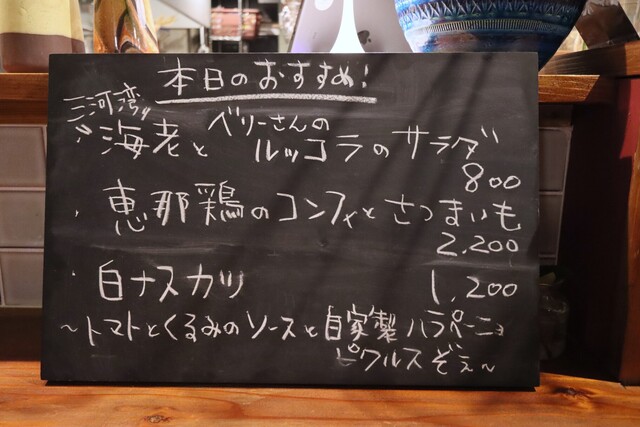 本日のおすすめ!
三河湾の
・海老とベリーさんのルッコラのサラダ
800
・恵那鶏のコンフィとさつまいも
2,200
・白ナスカツ 1,200
〜トマトとくるみのソースと自家製ハラペーニョ
ピクルスぞえ〜